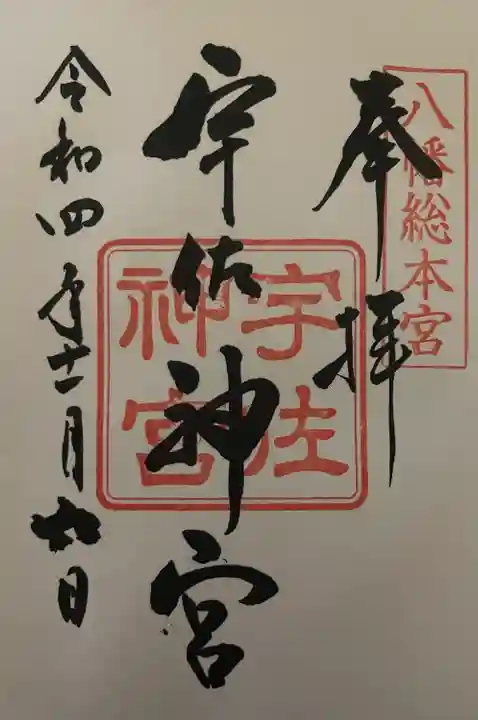 八幡総本宮
奉拝
宇佐神宮
宇佐
神宮
令和四年十一月 日